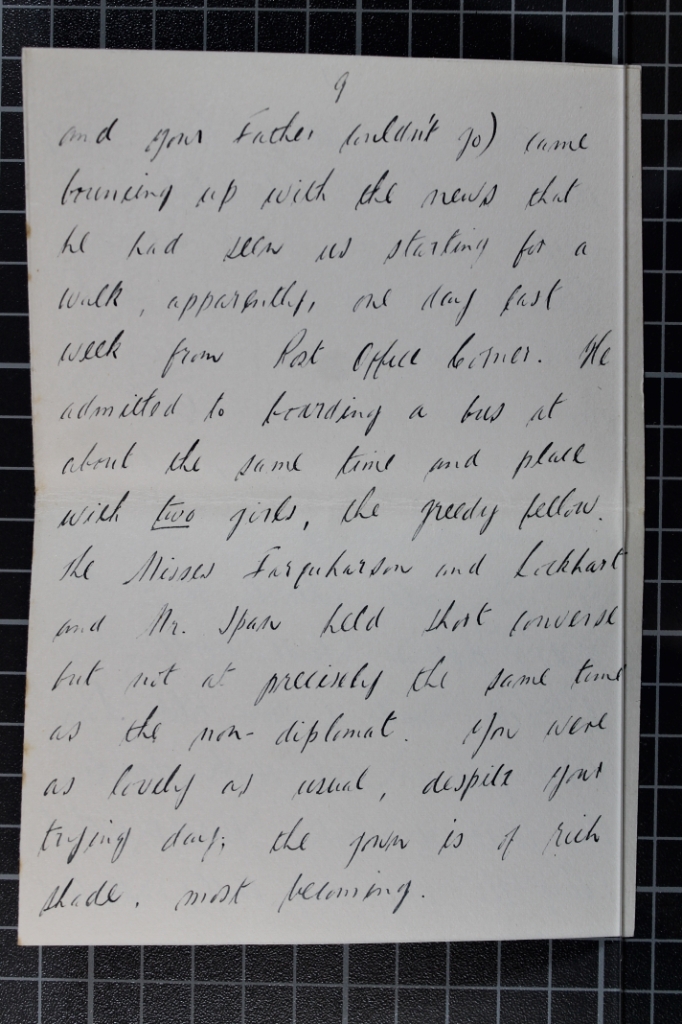 9
and your Father couldn't go) came
bouncing up with the news that
he had seen us starting for a
walk, apparently, one day last
week from Post Office Corner. He
admitted to boarding a bus at
about the same time and place
with two girls, the greedy fellow.
The Misses Farquharson and Lockhart
and Mr. Span held short converse
but not at precisely the same time
as the non-diplomat. You were
as lovely as usual, despite your
trying day; the gown is of rich
shade, most becoming.